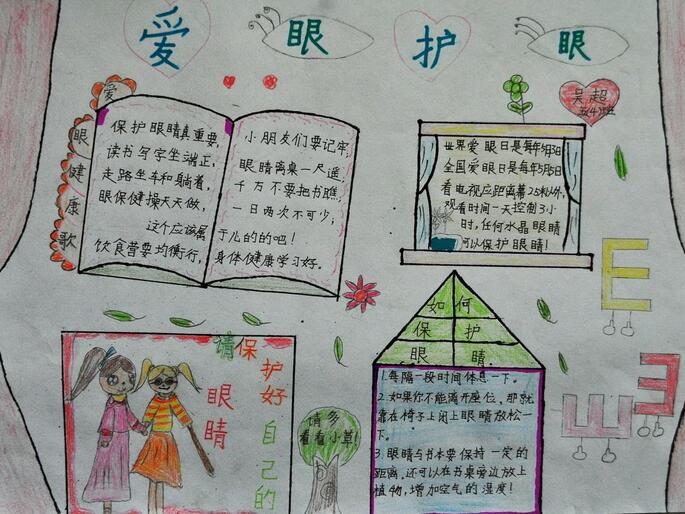 爱眼护眼
爱眼健康歌
保护眼睛真重要,
读书写字坐端正,
走路坐车和躺着,
眼保健操天天做,
这个应该属
饮食营要均衡行,
小朋友们要记牢;
眼睛离桌一尺遥,
千万不要把书瞧;
一日两次不可少;
于儿的的吧!
身体健康学习好。
吴超
五4班
世界爱眼日是每年
全国爱眼日是每年
看电视应距离幕2.5米以外,
观看时间一天控制3小
时,任何水晶眼睛
可以保护眼睛!
请保护好自己的
眼睛
请多
看看小草!
如何
保护
眼睛
1.每隔一段时间休息一下。
2.如果你不能离开座位,那就
靠在椅子上闭上眼睛放松一
下。
3.眼睛与书本要保持一定的
距离.还可以在书桌旁边放上
植物,增加空气的湿度!
E
E
E